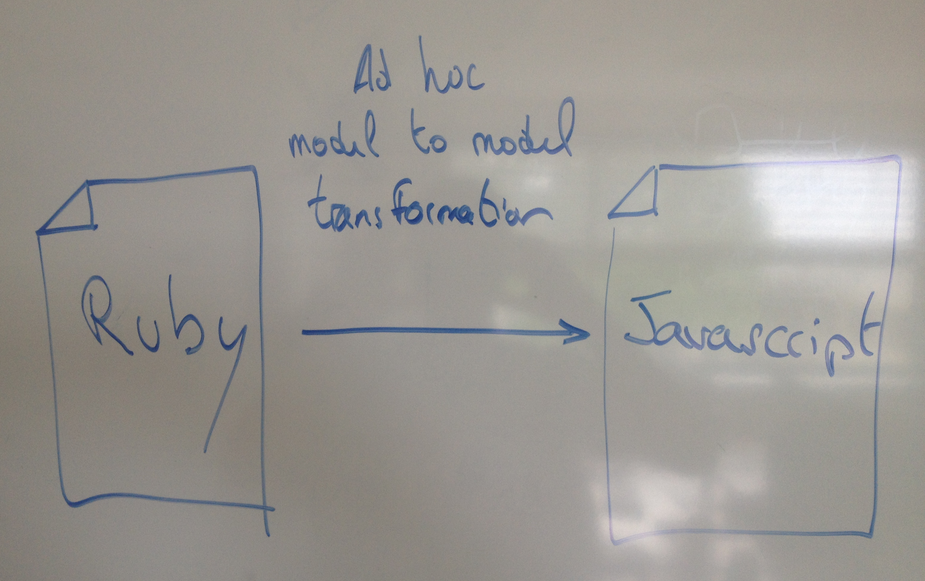 Ad hoc
model to model
transformation
Ruby
Javascript